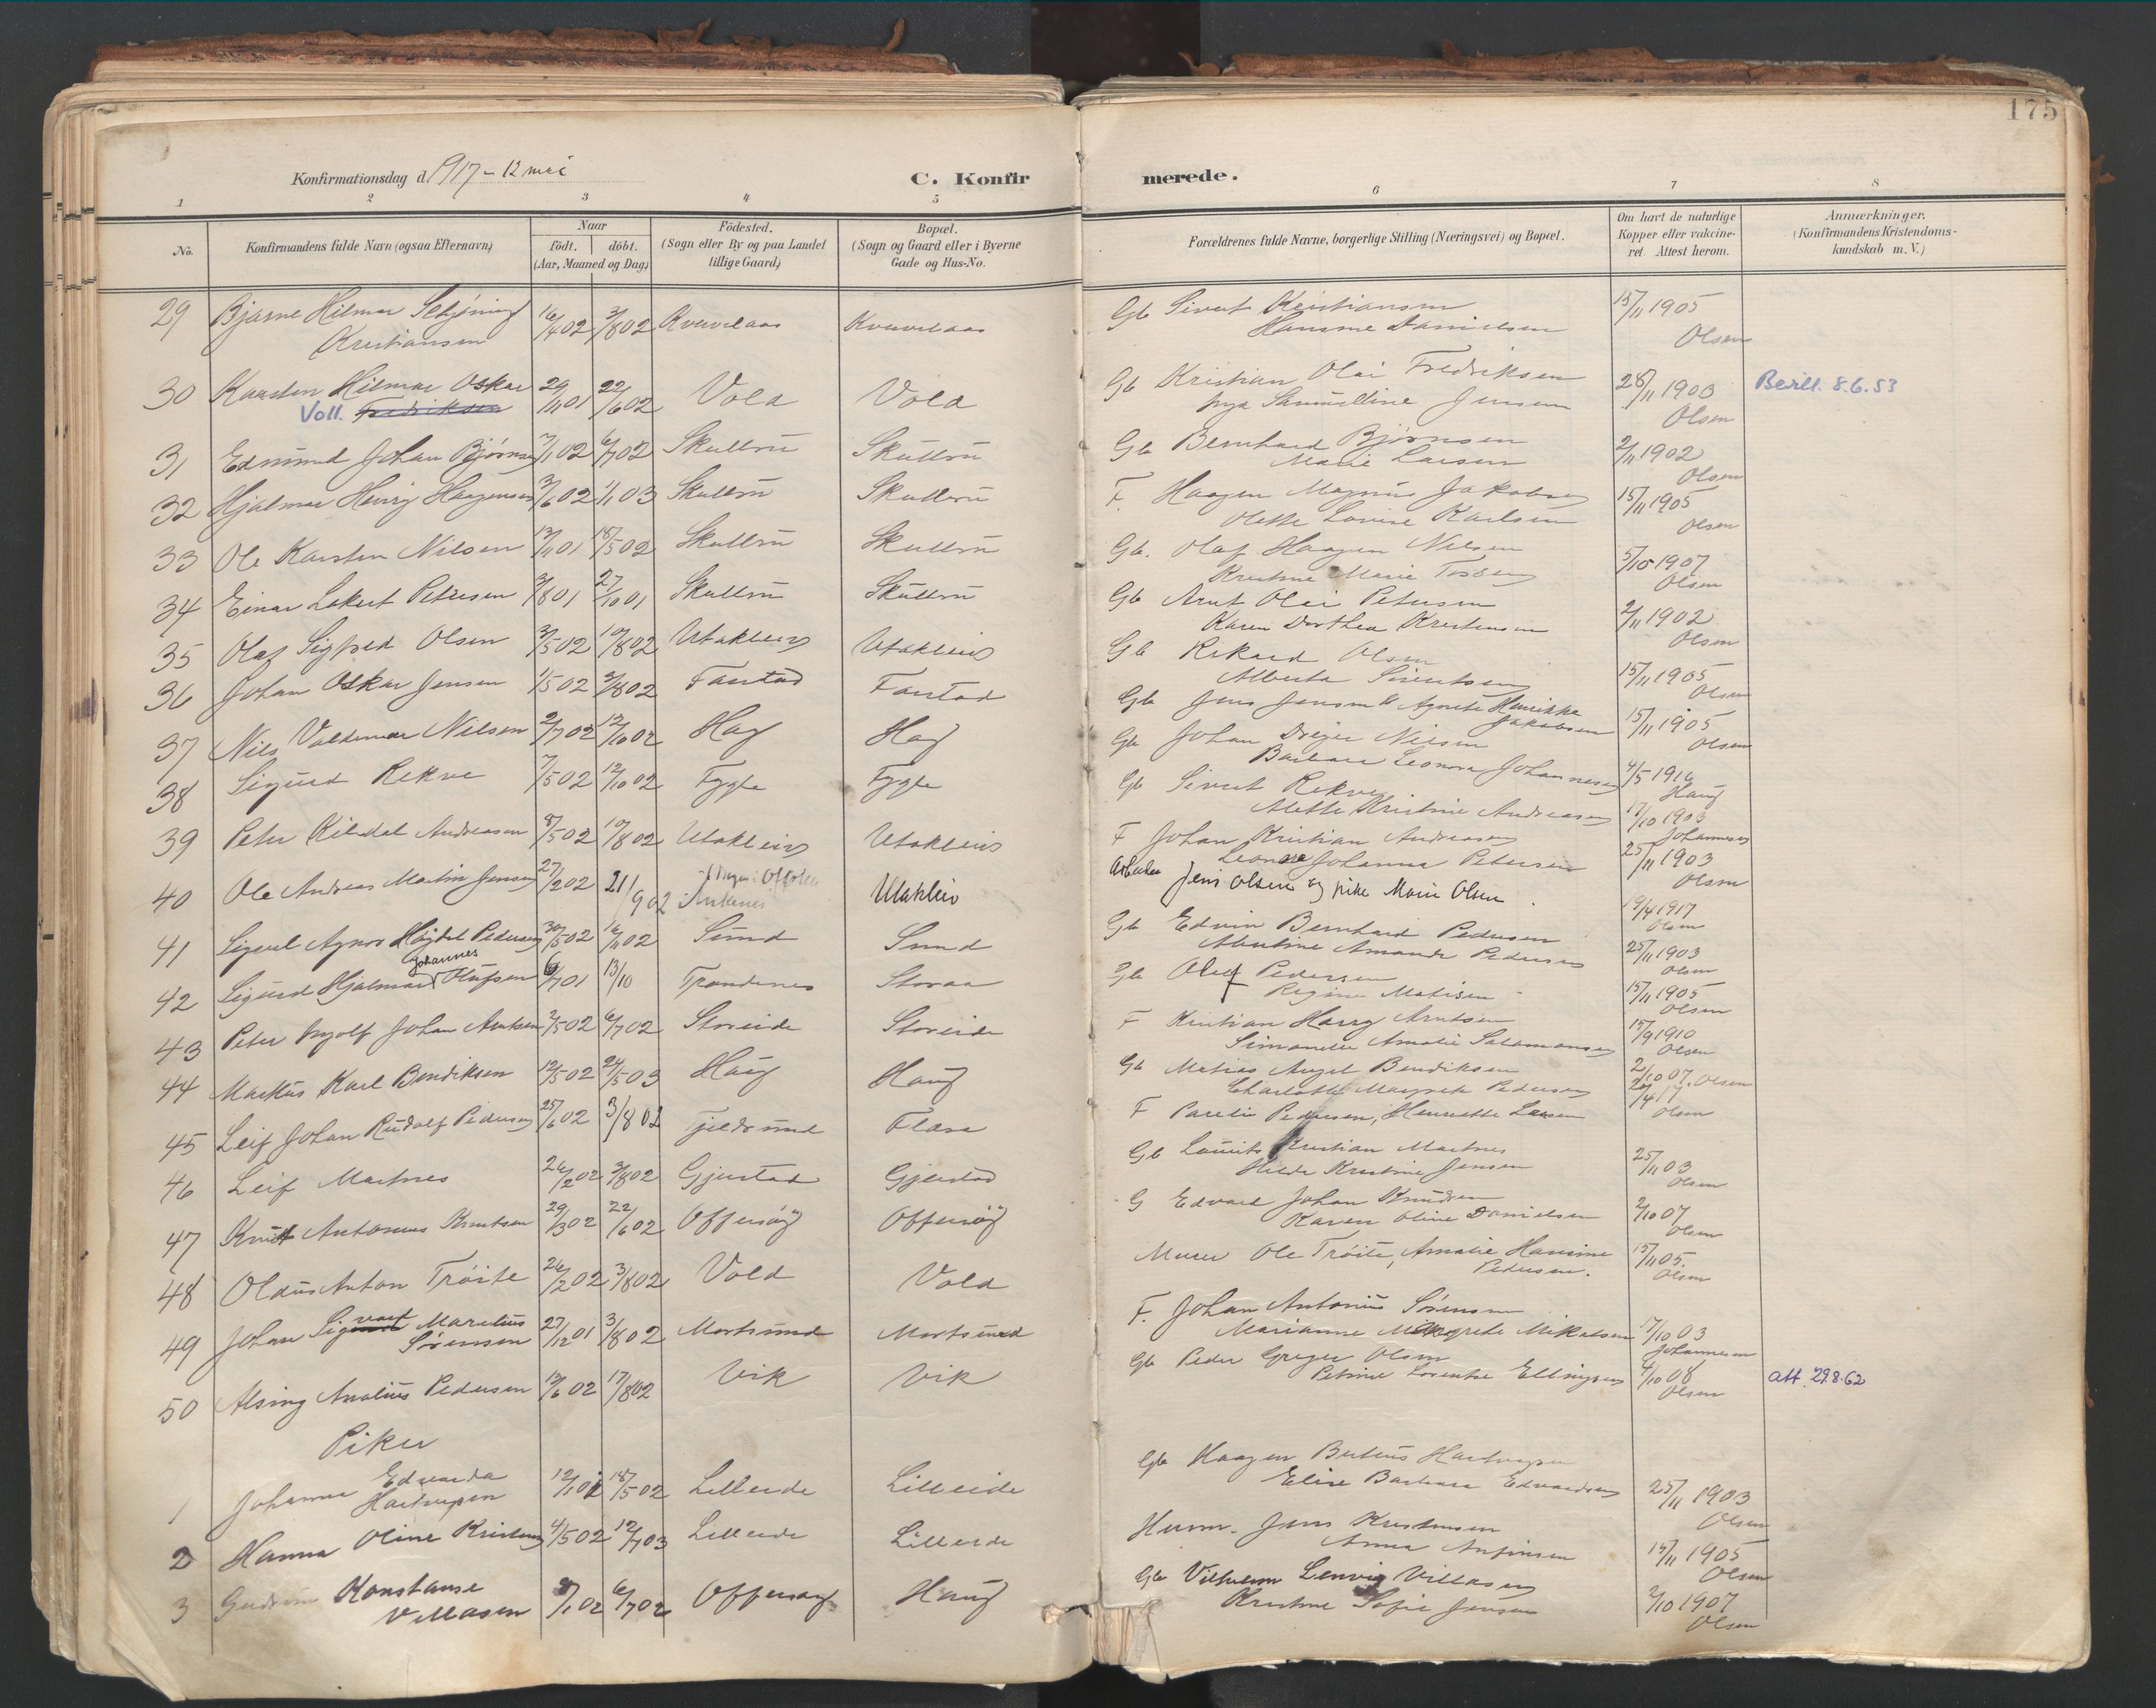 175
Konfirmationsdag d. 1917 - 12 mai
C. Konfirmerede.
1 2 3 4 5 6 7 8
No.
Konfirmandens fulde Navn (ogsaa Efternavn)
Naar
födt. döbt.
(Aar, Maaned og Dag)
Födested.
(Sogn eller By og paa Landet
tillige Gaard)
Bopæl.
(Sogn og Gaard eller i Byerne
Gade og Hus-No.
Forældrenes fulde Navne, borgerlige Stilling (Næringsvei) og Bopæl.
Om havt de naturlige
Kopper eller vakcine-
ret. Attest herom.
Anmærkninger.
(Konfirmandens Kristendoms-
kundskab m. V.)
29 Bjarne Hilmar Schjöning 16/4 02 3/8 02 Kvervelaas Kvervelaas Gb Sivert Kristiansen 15/11 1905
Kristiansen Hansine Danielsen Olsen
30 Karsten Hilmar Oskar 29/11 01 22/6 02 Vold Vold Gb Kristian Olai Fredriksen 28/11 1903 Berll. 8.6.53
Voll. Fredriksen Inga Samueline Jensen Olsen
31 Edmund Johan Bjørnsen 3/1 02 6/7 02 Skullru Skullru Gb Bernhard Bjørnsen 2/11 1902
Marie Larsen Olsen
32 Hjalmar Henrig Haagensen 3/6 02 1/1 03 Skullru Skullru F. Haagen Magnus Jakobsen 15/11 1905
Olette Lovise Karlsen Olsen
33 Ole Karsten Nilsen 13/11 01 18/5 02 Skullru Skullru Gb. Olaf Haagen Nilsen 5/10 1907
Kristine Marie Olsen
34 Einar Lokert Petersen 3/8 01 27/10 01 Skullru Skullru Gb Arnt Olai Petersen 2/11 1902
Karen Dorthea Kristensen Olsen
35 Olaf Sigfred Olsen 3/5 02 10/8 02 Utakleiv Utakleiv Gb Rikard Olsen 15/11 1905
Alberta Sivertsen Olsen
36 Johan Oskar Jensen 1/5 02 3/8 02 Farstad Farstad Gb Jens Jensen & Agnete Henrikke 15/11 1905
Jakobsen Olsen
37 Nils Valdemar Nilsen 2/7 02 12/10 02 Hag Hag Gb Johan Nilsen 4/5 1916
Barbara Leonora Johannesen Haug
38 Sigurd Rekve 7/5 02 12/10 02 Fygle Fygle Gb Sivert Rekve 17/10 1903
Alette Kristine Andreasen Johannesen
39 Peter Rildal Andreasen 8/5 02 10/8 02 Utakleiv Utakleiv F Johan Kristian Andreasen 25/11 1903
Leonore Johanna Petersen Olsen
40 Ole Andreas Martin Jensen 27/2 02 21/9 02 Ankenes Utakleiv Arbeider Jens Olsen og pike Marie Olsen 19/4 1917
Olsen
41 Sigurd Agnor Høydal Pedersen 30/5 02 16/11 02 Sund Sund Gb Edvin Bernhard Pedersen 25/11 1903
Albertine Amanda Pedersen Olsen
42 Sigurd Hjalmar Johannes Olufsen 6/7 01 13/10 Trondenes Storaa Gb Oluf Pedersen 15/11 1905
Regine Matisen Olsen
43 Peter Ingolf Johan Arntsen 2/5 02 6/7 02 Storeide Storeide F Kristian Harry Arntsen 15/9 1910
Simonette Amalie Salamonsen Olsen
44 Markus Karl Bendiksen 12/5 02 24/5 03 Haug Haug Gb Matias Angel Bendiksen 2/10 07. Olsen
Charlotte Margrete Pedersen
45 Leif Johan Rudolf Pedersen 25/6 02 3/8 02 Tjeldsund Flæsa F Pareli Pedersen, Henriette Larsen 20/4 17 Olsen
46 Leif Martnes 26/2 02 3/8 02 Gjerstad Gjerstad Gb Laurits Kristian Martnes 25/11 03
Hilda Kristine Jensen Olsen
47 Knut Antonius Knutsen 29/3 02 22/6 02 Offersøy Offersøy G Edvard Johan Knudsen 2/10 07
Karen Oline Danielsen Olsen
48 Oldus Anton Tröite 26/2 02 3/8 02 Vold Vold Murer Ole Tröite, Amalie Hansine 15/11 05.
Pedersen. Olsen
49 Johan Sigvart Marelius 27/12 01 3/8 02 Mortsund Mortsund F. Johan Antonius Sörensen 17/10 03
Sörensen Marianne Margrete Mikalsen Johannesen
50 Alsing Analius Pedersen 13/6 02 17/8 02 Vik Vik Gb Peder Greger Olsen 4/10 08 att. 29.8.62
Petrine Lorentse Ellingsen Olsen
Piker
1 Johanna Edvarda 12/1 01 18/5 02 Lilleeide Lilleeide Gb Haagen Berteus Hartvigsen 25/11 1903
Hartvigsen Elise Barbara Edvardsen Olsen
2 Hanna Oline Kristensen 4/5 02 12/7 03 Lilleeide Lilleeide Husm. Jens Kristensen 15/11 1905
Anna Anfinsen Olsen
3 Gudrun Konstanse 8/1 02 6/7 02 Offersøy Haug Gb Vilhelm Lenvig Villasen 2/10 1907
Villasen Kristine Sofie Jensen Olsen